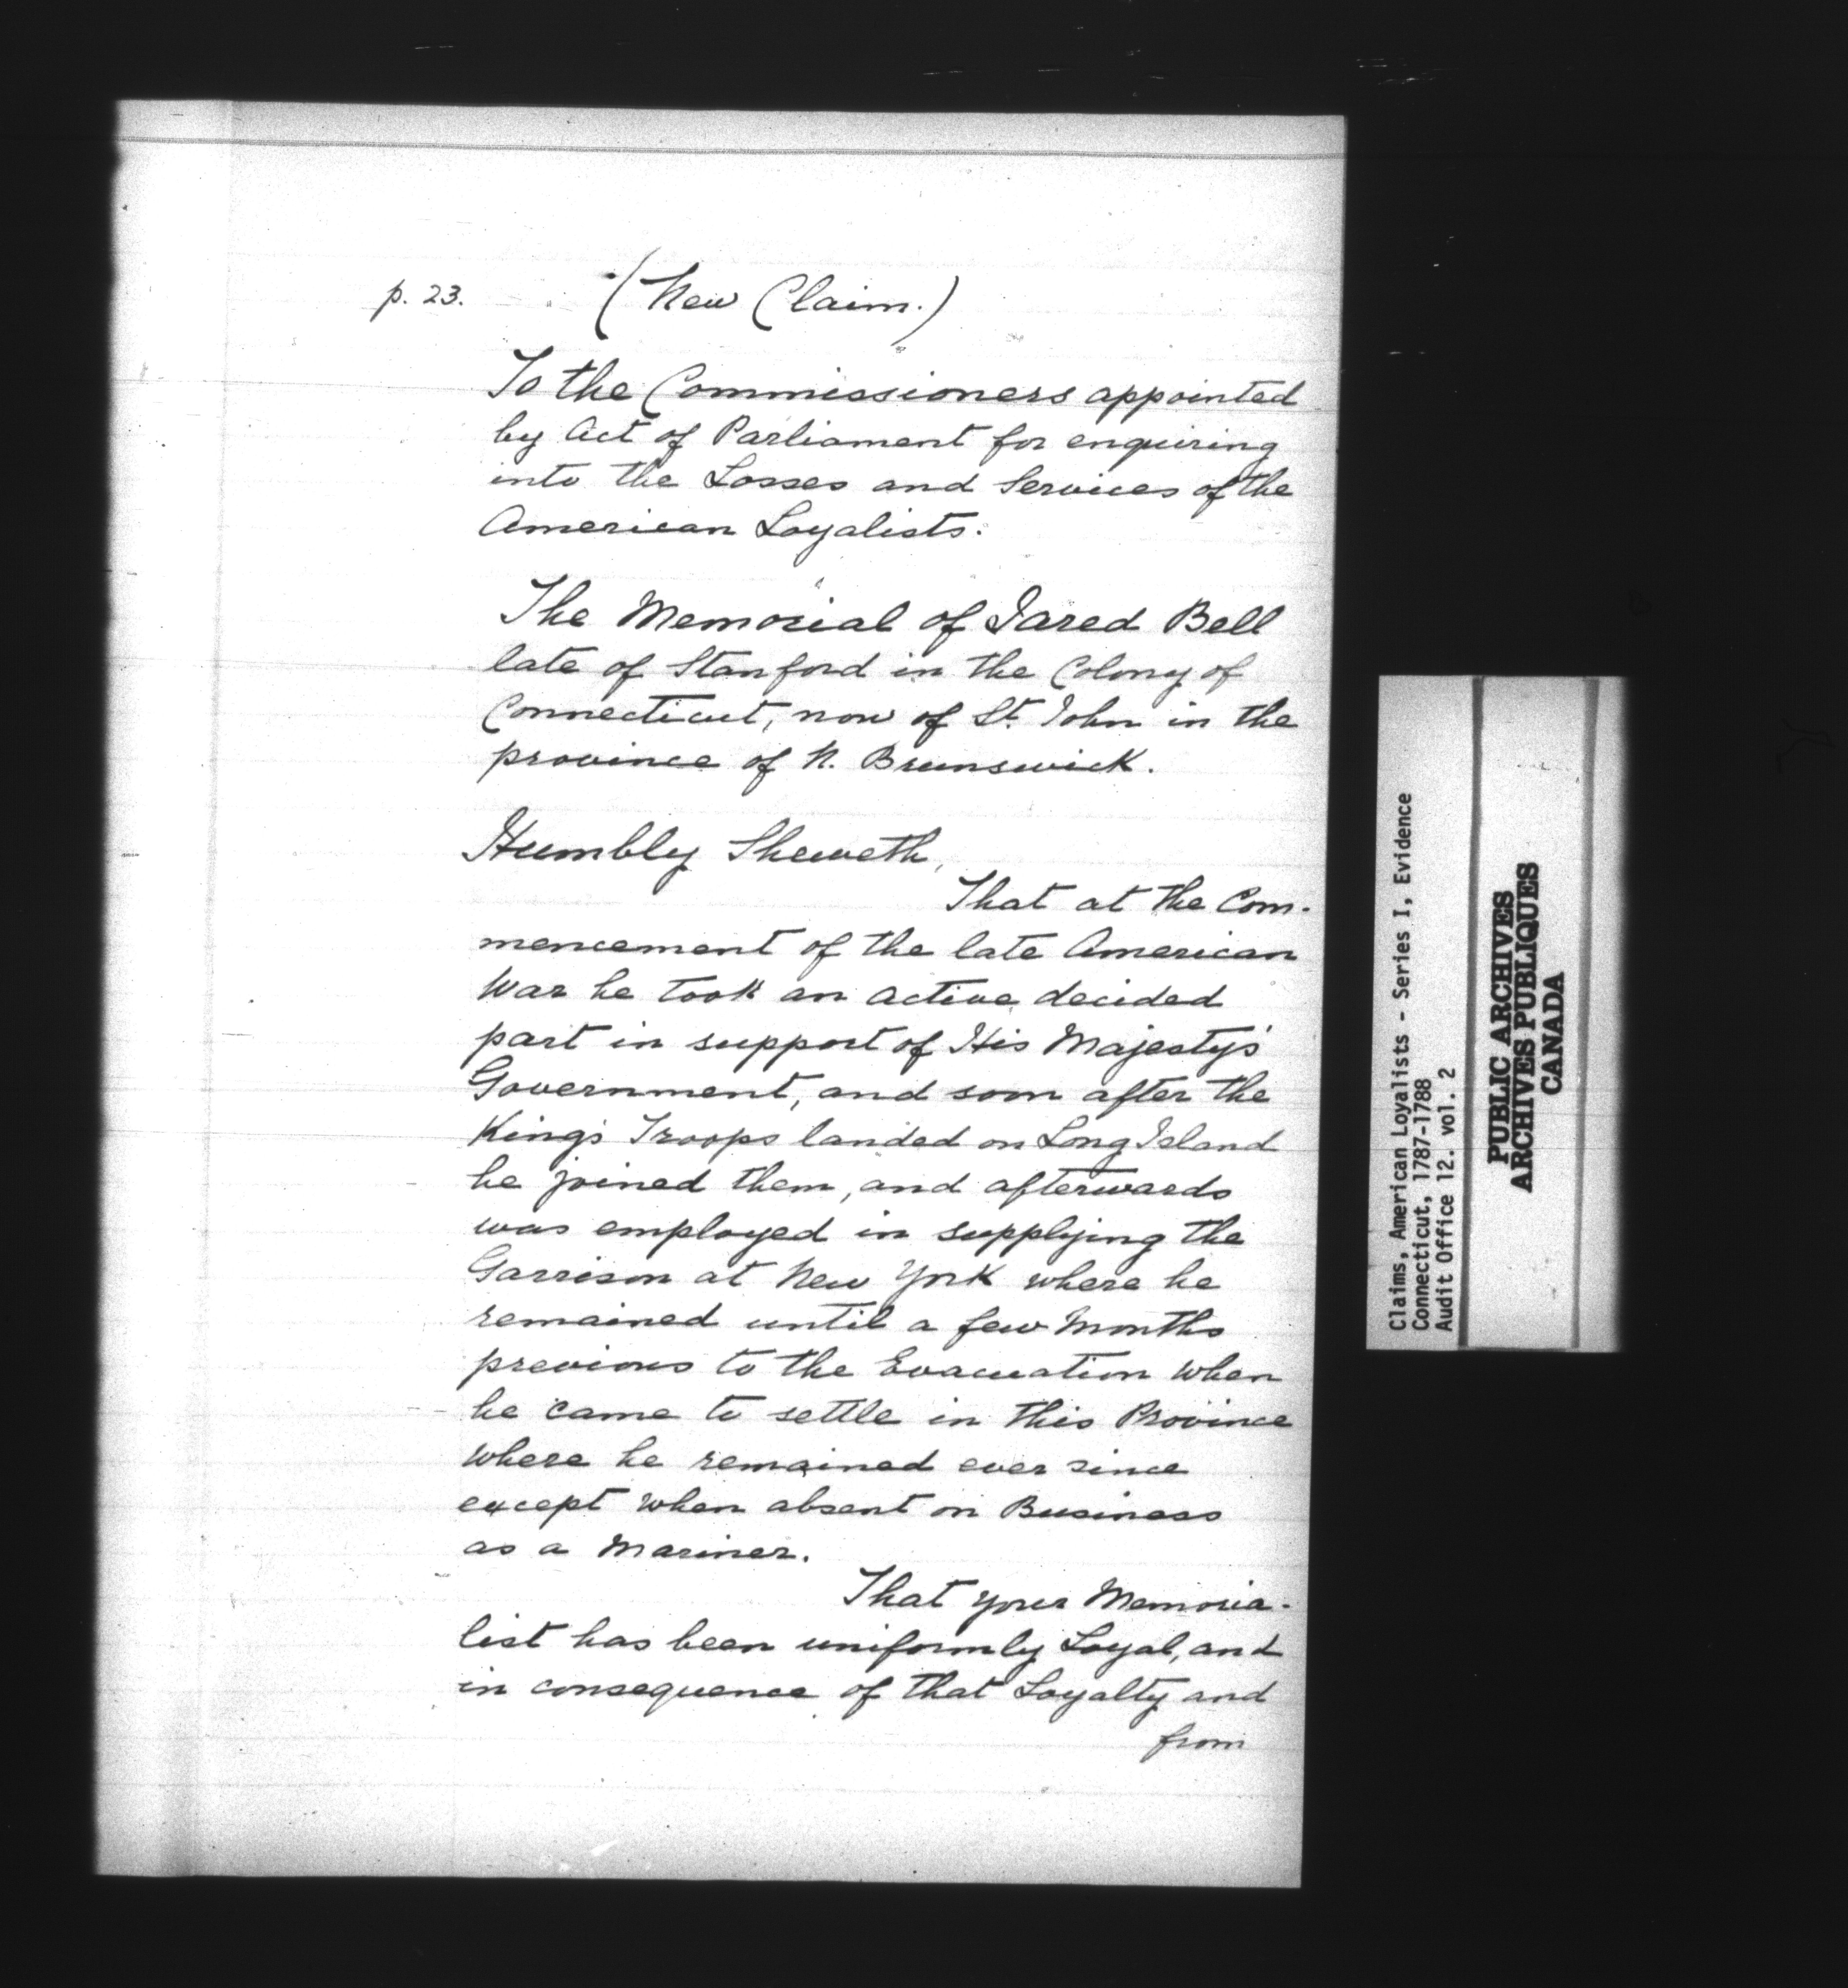 p. 23. (New Claim.)
To the Commissioners appointed
by Act of Parliament for enquiring
into the Losses and Services of the
American Loyalists.
The Memorial of Jared Bell
late of Stanford in the Colony of
Connecticut, now of St. John in the
province of N. Brunswick.
Humbly Sheweth,
That at the Com-
mencement of the late American
War he took an active decided
part in support of His Majesty's
Government, and soon after the
King's Troops landed on Long Island
he joined them, and afterwards
was employed in supplying the
Garrison at New York where he
remained until a few Months
previous to the Evacuation when
he came to settle in this Province
where he remained ever since
except when absent on Business
as a Mariner.
That your Memoria-
list has been uniformly Loyal, and
in consequence of that Loyalty and
from
Claims, American Loyalists - Series I, Evidence
Connecticut, 1787-1788
Audit Office 12. vol. 2
PUBLIC ARCHIVES
ARCHIVES PUBLIQUES
CANADA